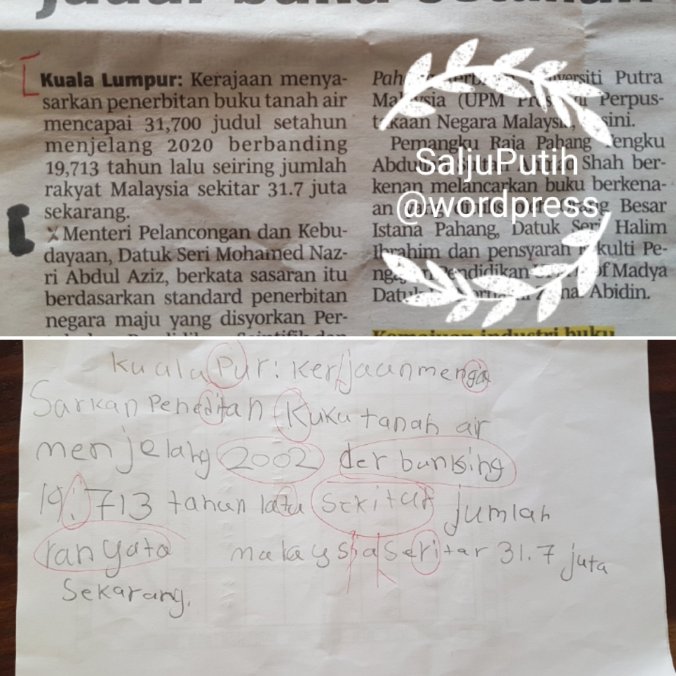 Kuala Lumpur: Kerajaan menya-
sarkan penerbitan buku tanah air
mencapai 31,700 judul setahun
menjelang 2020 berbanding
19,713 tahun lalu seiring jumlah
rakyat Malaysia sekitar 31.7 juta
sekarang.
Menteri Pelancongan dan Kebu-
dayaan, Datuk Seri Mohamed Naz-
ri Abdul Aziz, berkata sasaran itu
berdasarkan standard penerbitan
negara maju yang disyorkan Per-
Putra
(UPM
Perpus-
Negara
sini.
Pemangku Raja Pahang Tengku
Shah ber-
kenan melancarkan buku berkena-
Besar
Istana Pahang, Datuk Seri Halim
Ibrahim dan pensyarah Fakulti Pe-
Madya
Abidin.
Kemajuan industri buku
SaljuPutih
@wordpress
Kuala Pur: Kerjaanmenga
Sarkan Peneditan Kuku tanah air
menjelang 2002 der bunksing
19.713 tahun latu Sekitar jumlah
ranyata malaysia Seritar 31.7 juta
Sekarang.